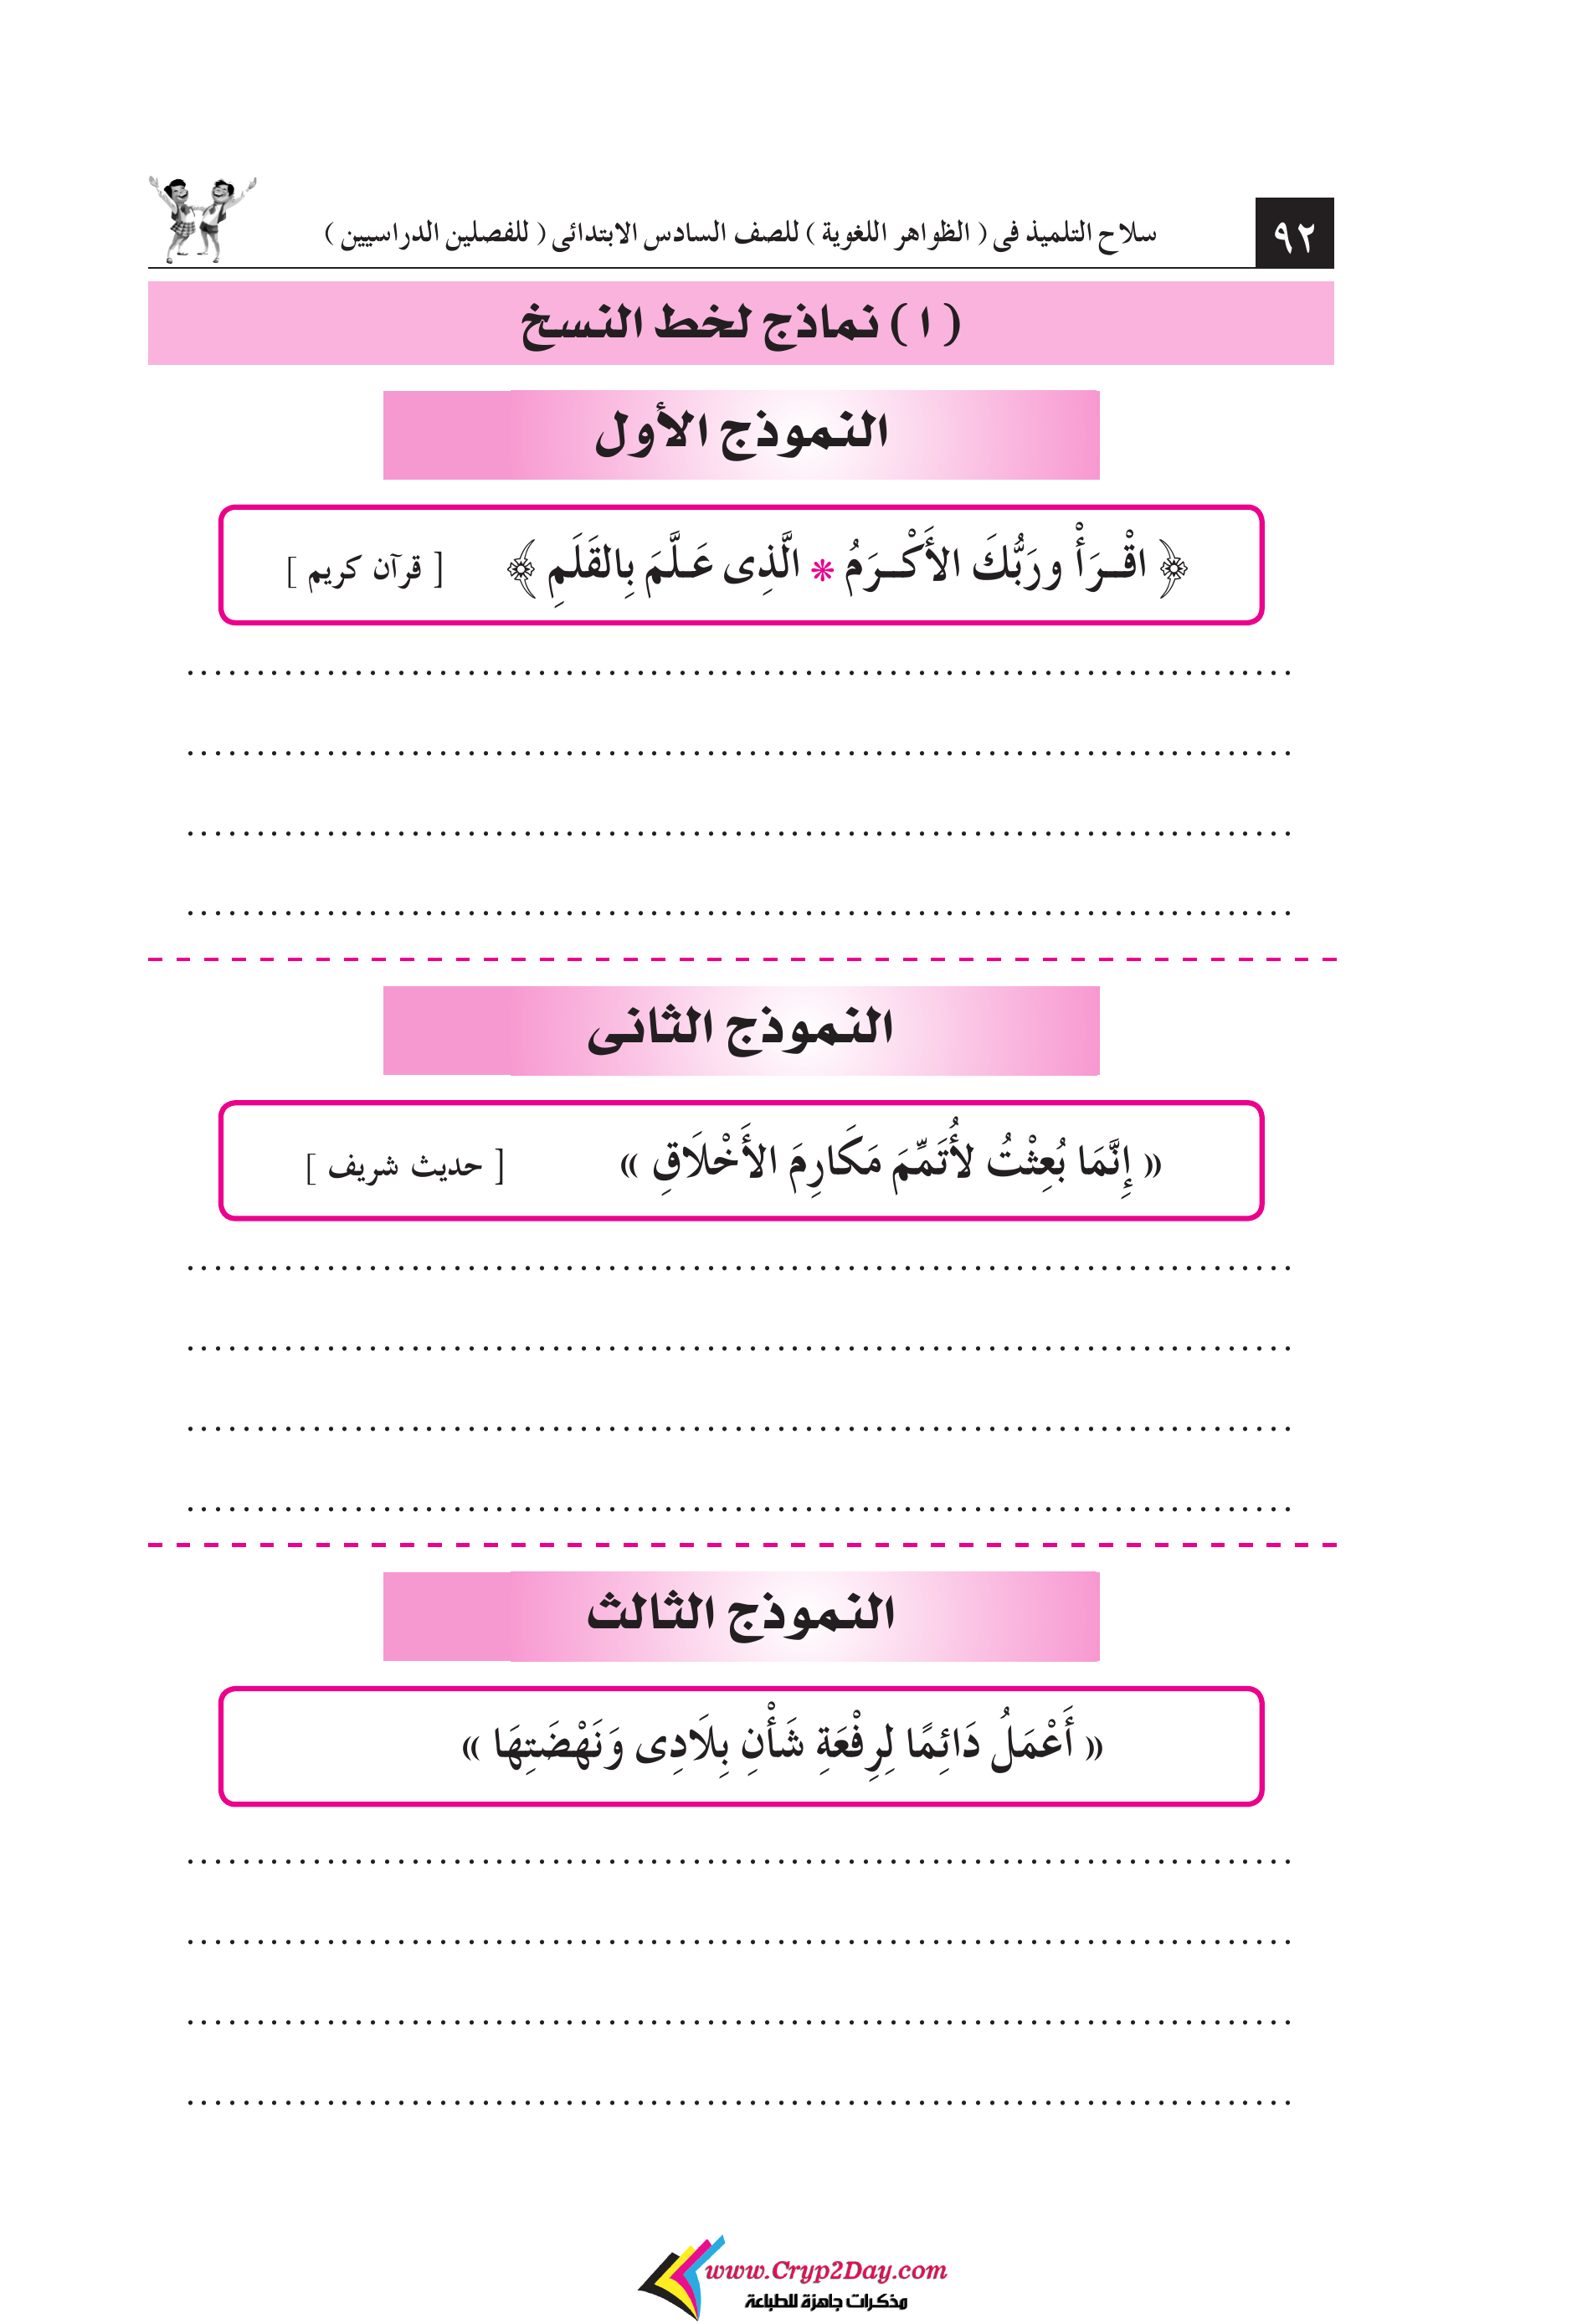 ٩٢
سلاح التلميذ فى ( الظواهر اللغوية ) للصف السادس الابتدائى ( للفصلين الدراسيين )
( ١ ) نماذج لخط النسخ
النموذج الأول
﴿ اقْــرَأْ ورَبُّكَ الأَكْــرَمُ * الَّذِى عَـلَّمَ بِالقَلَمِ ﴾ [ قرآن كريم ]
النموذج الثانى
« إِنَّمَا بُعِثْتُ لأُتَمِّمَ مَكَارِمَ الأَخْلَاقِ » [ حديث شريف ]
النموذج الثالث
« أَعْمَلُ دَائِمًا لِرِفْعَةِ شَأْنِ بِلَادِى وَنَهْضَتِهَا »
www.Cryp2Day.com
مذكرات جاهزة للطباعة